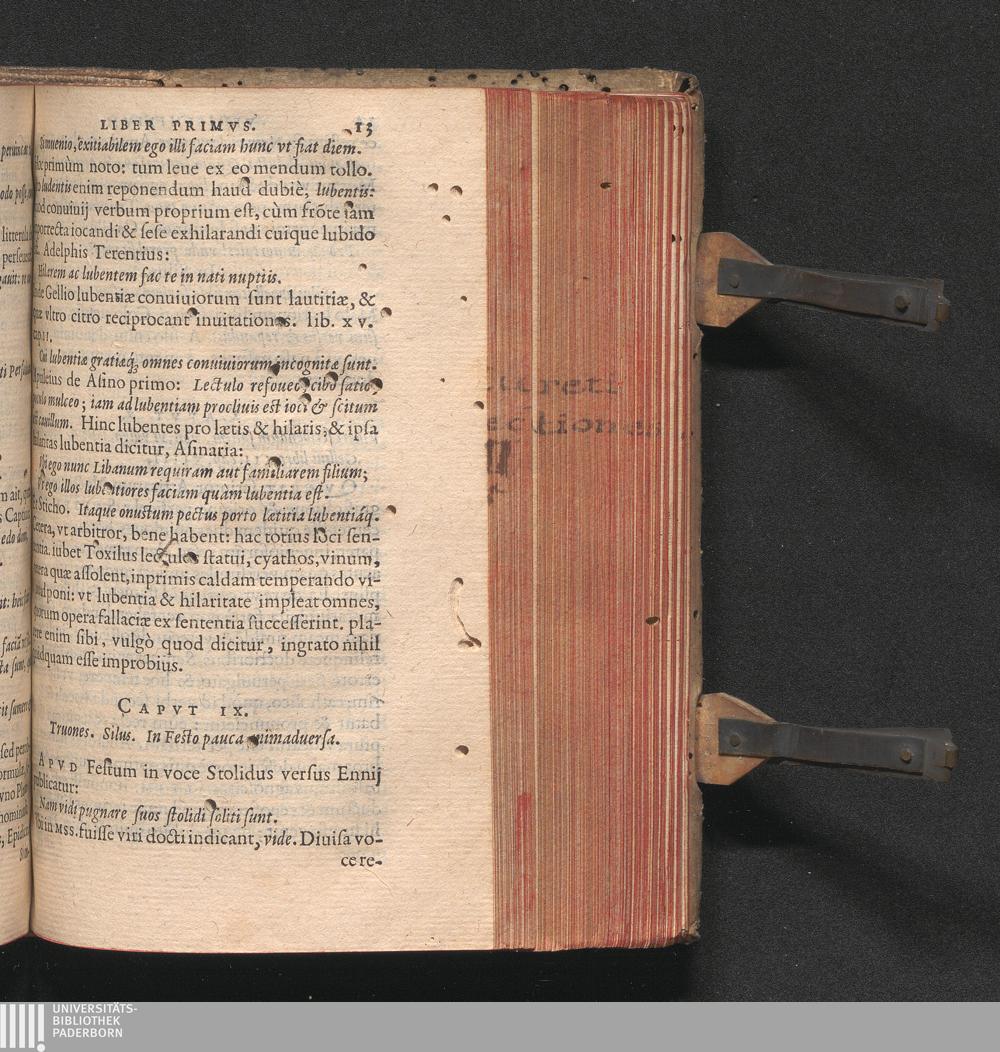 LIBER PRIMVS. 13
inuenio, exitiabilem ego illi faciam hunc vt fiat diem.
primùm noto: tum leue ex eo mendum tollo.
ludentis enim reponendum haud dubiè, lubentis:
conuiuij verbum proprium est, cùm frōte iam
porrecta iocandi & sese exhilarandi cuique lubido
Adelphis Terentius:
Hilarem ac lubentem fac te in nati nuptiis.
Gellio lubentiæ conuiuiorum sunt lautitiæ, &
vltro citro reciprocant inuitationes. lib. xv.
lubentiæ gratiæq́; omnes conuiuiorum incognitæ sunt.
Apuleius de Asino primo: Lectulo refouec, cibo satio,
mulceo; iam ad lubentiam procliuis est ioci & scitum
cauillum. Hinc lubentes pro lætis & hilaris, & ipsa
hilaritas lubentia dicitur, Asinaria:
ego nunc Libanum requiram aut familiarem filium;
Vt ego illos lubentiores faciam quàm lubentia est.
Sticho. Itaque onustum pectus porto lætitia lubentiáq́.
Cetera, vt arbitror, bene habent: hac totius loci sen-
tentia. iubet Toxilus lectulos statui, cyathos, vinum,
quæ assolent, inprimis caldam temperando vi-
poni: vt lubentia & hilaritate impleat omnes,
quorum opera fallaciæ ex sententia successerint. pla-
enim sibi, vulgò quod dicitur, ingrato nihil
quidquam esse improbius.
CAPVT IX.
Truones. Silus. In Festo pauca animaduersa.
APVD Festum in voce Stolidus versus Ennij
publicatur:
Nam vidi pugnare suos stolidi soliti sunt.
in MSS. fuisse viri docti indicant, vide. Diuisa vo-
ce re-
UNIVERSITÄTS-
BIBLIOTHEK
PADERBORN